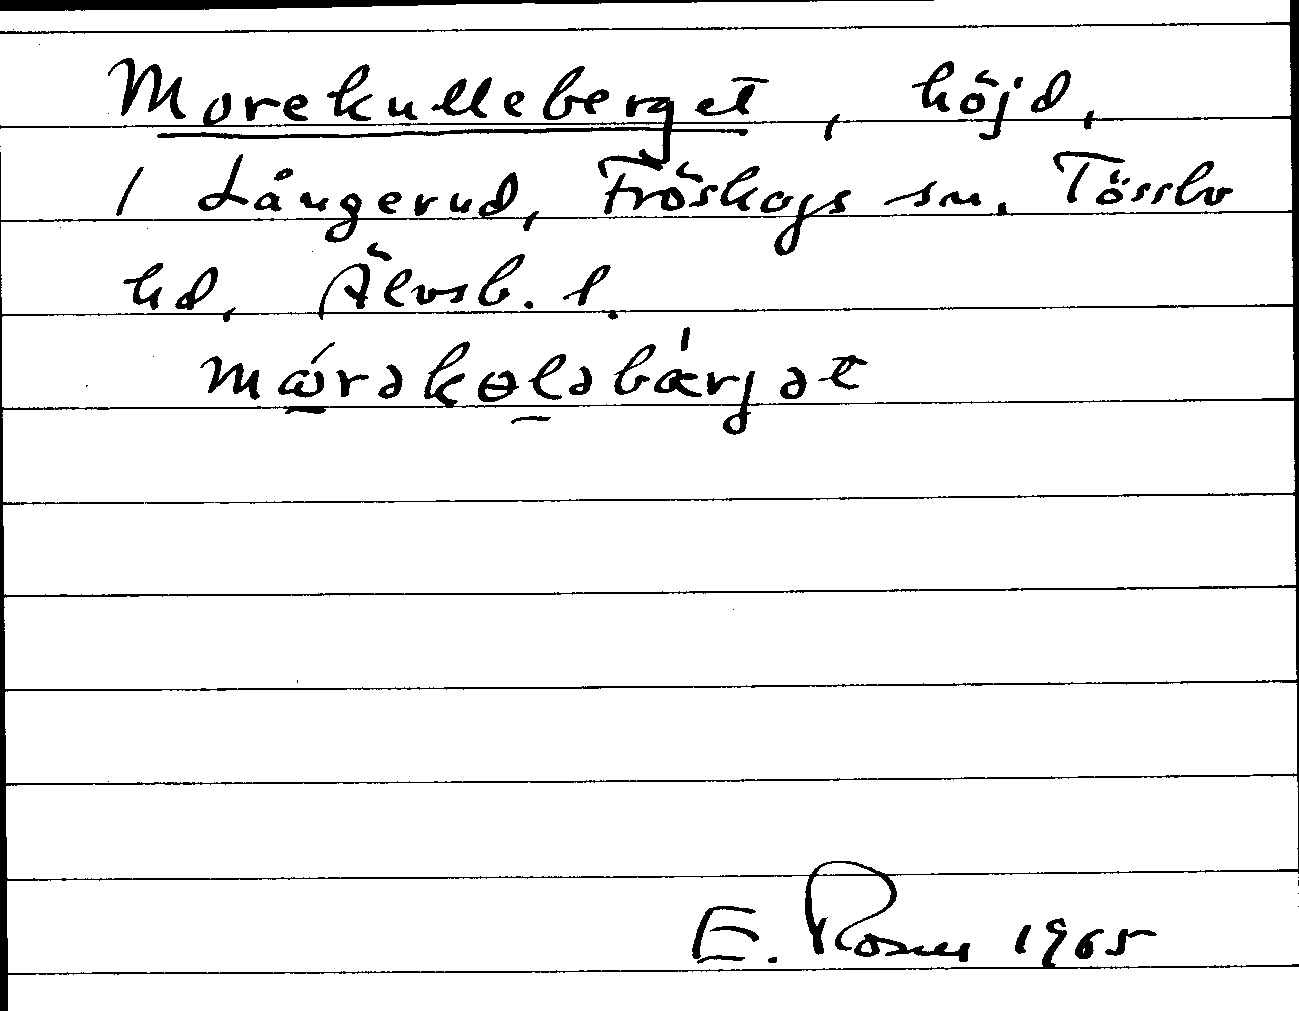 Morekulleberget, höjd,
I Långerud, Fröskogs sn. Tössbo
hd, Älvsb. l.
mώrəkɵləbǽrjət
E. Rosell 1965